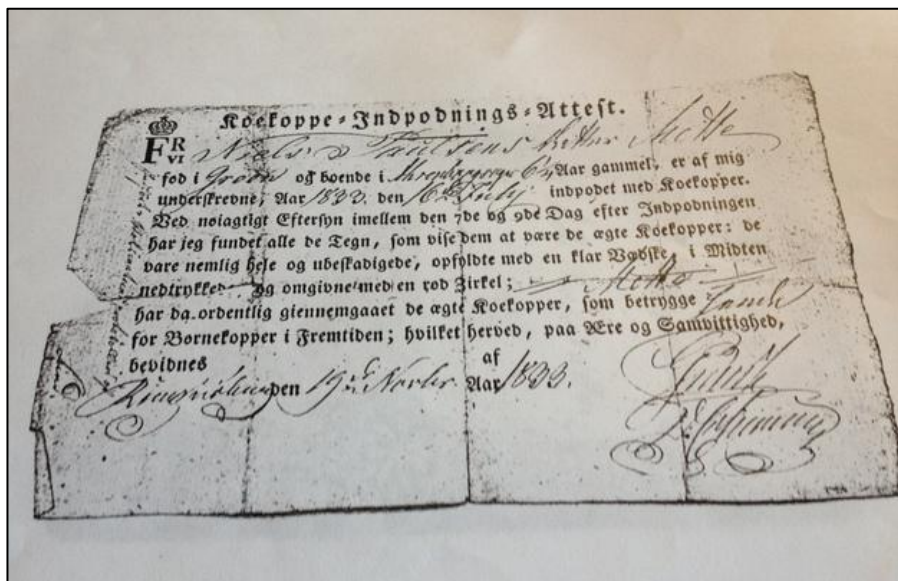 Koekoppe-Indpodnings-Attest.
F R VI
Niels Paulsens Datter Mette
fød i og boende i 6½ Aar gammel, er af mig
underskrevne, Aar 1833. den 16de July indpodet med Koekopper.
Ved nøiagtigt Eftersyn imellem den 7de og 9de Dag efter Indpodningen
har jeg fundet alle de Tegn, som vise dem at være de ægte Koekopper: de
vare nemlig hele og ubeskadigede, opfyldte med en klar Vædske, i Midten
nedtrykkede, og omgivne med en rød Zirkel; Mette
har da ordentlig giennemgaaet de ægte Koekopper, som betrygge
for Børnekopper i Fremtiden; hvilket herved, paa Ære og Samvittighed,
bevidnes af
den 19de Novbr. Aar 1833.